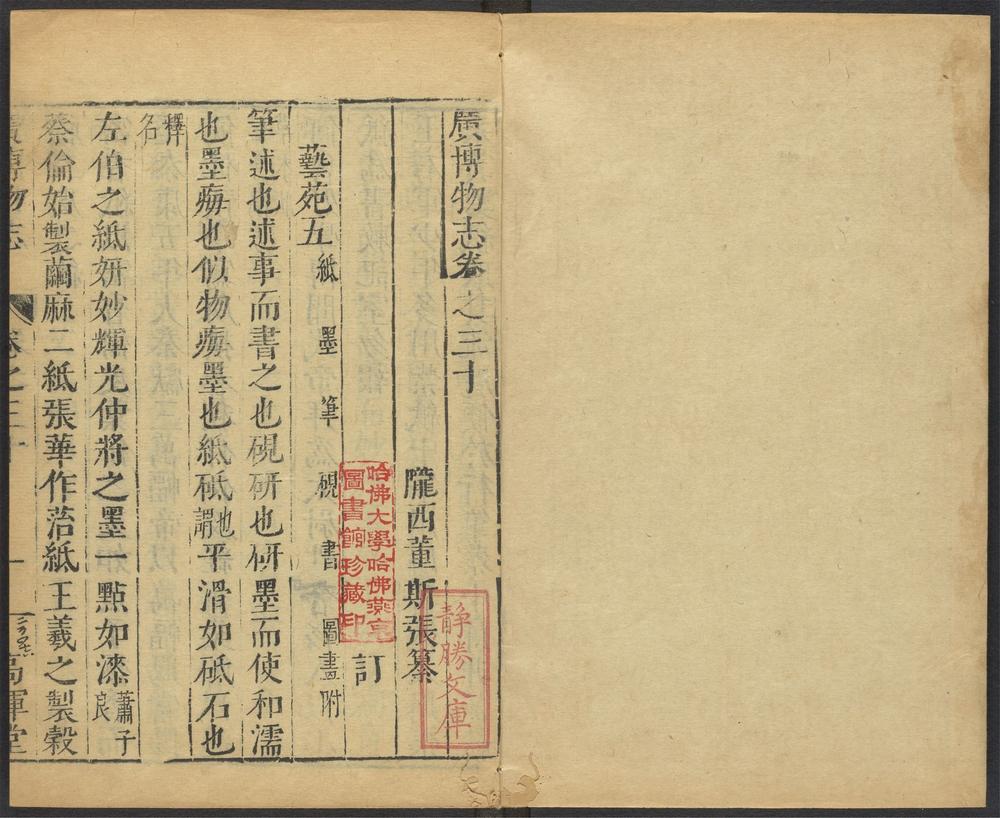 廣博物志卷之三十
隴西董斯張纂
訂
藝苑五 紙 墨 筆 硯 書 圖畫附
筆述也述事而書之也硯研也研墨而使和濡
也墨痗也似物痗墨也紙砥也謂平滑如砥石也
釋名
左伯之紙妍妙輝光仲將之墨一點如漆蕭子良
蔡倫始製繭麻二紙張華作苔紙王羲之製榖
廣博物志 卷之三十 一 高暉堂
哈佛大學哈佛燕京圖書館珍藏印
靜勝文庫